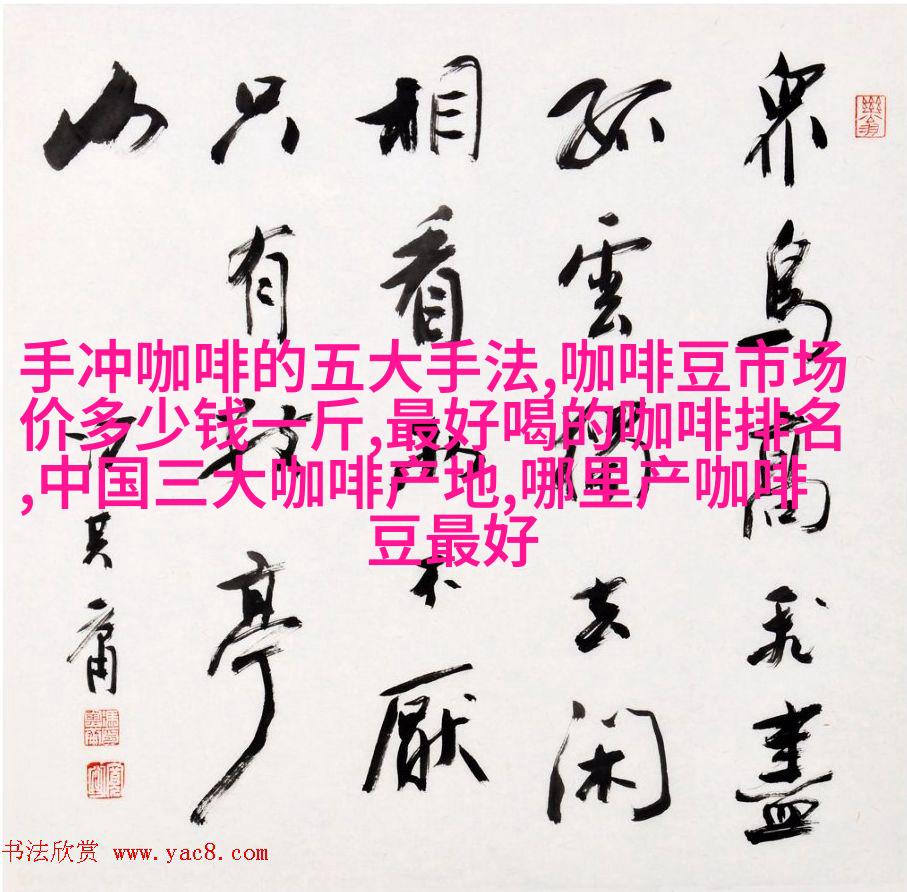 手冲咖啡的五大手法,咖啡豆市场
价多少钱一斤,最好喝的咖啡排名
,中国三大咖啡产地,哪里产咖啡
豆最好
眾鳥高飛盡
孤雲獨去閑
相看兩不厭
只有敬亭
山
馮其庸
书法欣赏 www.yac8.com